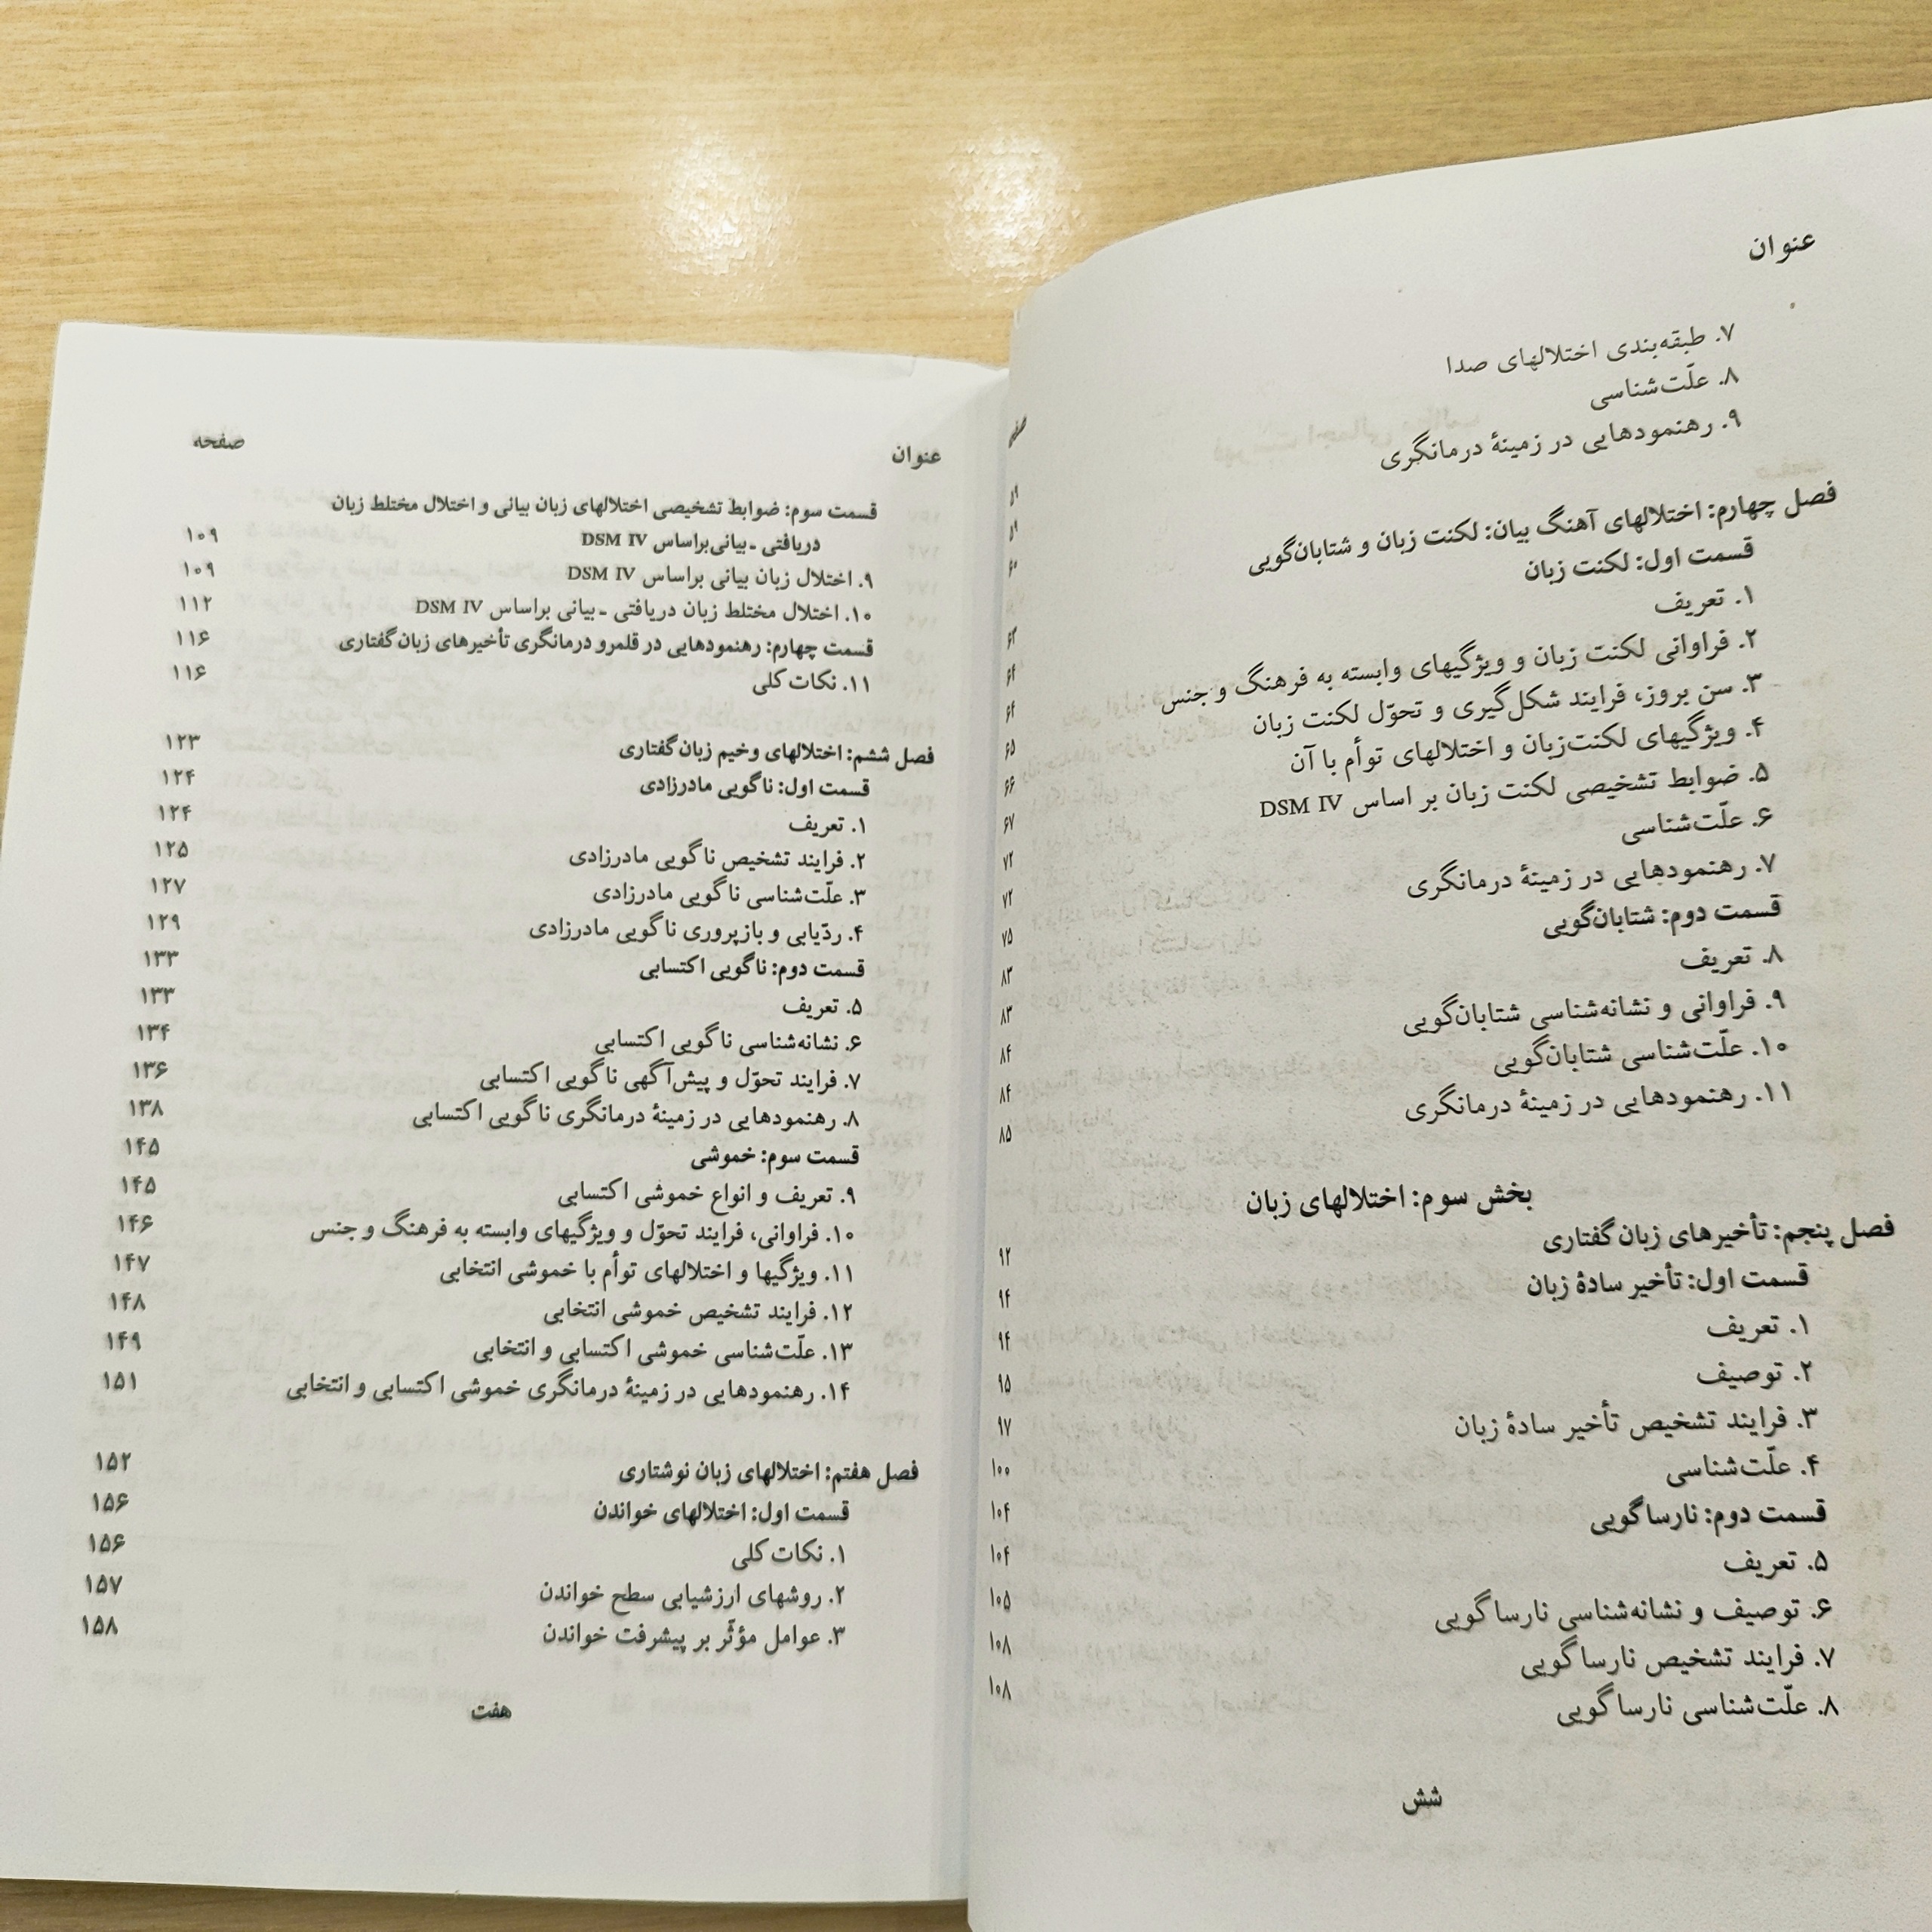 عنوان صفحه
۷. طبقه‌بندی اختلالهای صدا ۵۹
۸. علّت‌شناسی ۵۹
۹. رهنمودهایی در زمینهٔ درمانگری ۶۰
فصل چهارم: اختلالهای آهنگ بیان: لکنت زبان و شتابان‌گویی ۶۳
قسمت اول: لکنت زبان ۶۴
۱. تعریف ۶۴
۲. فراوانی لکنت زبان و ویژگیهای وابسته به فرهنگ و جنس ۶۵
۳. سن بروز، فرایند شکل‌گیری و تحوّل لکنت زبان ۶۶
۴. ویژگیهای لکنت‌زبان و اختلالهای توأم با آن ۶۷
۵. ضوابط تشخیصی لکنت زبان بر اساس DSM IV ۷۲
۶. علّت‌شناسی ۷۲
۷. رهنمودهایی در زمینهٔ درمانگری ۷۵
قسمت دوم: شتابان‌گویی ۸۳
۸. تعریف ۸۳
۹. فراوانی و نشانه‌شناسی شتابان‌گویی ۸۴
۱۰. علّت‌شناسی شتابان‌گویی ۸۴
۱۱. رهنمودهایی در زمینهٔ درمانگری ۸۵
بخش سوم: اختلالهای زبان
فصل پنجم: تأخیرهای زبان‌گفتاری ۹۲
قسمت اول: تأخیر سادهٔ زبان ۹۴
۱. تعریف ۹۴
۲. توصیف ۹۵
۳. فرایند تشخیص تأخیر سادهٔ زبان ۹۷
۴. علّت‌شناسی ۱۰۰
قسمت دوم: نارساگویی ۱۰۴
۵. تعریف ۱۰۴
۶. توصیف و نشانه‌شناسی نارساگویی ۱۰۵
۷. فرایند تشخیص نارساگویی ۱۰۸
۸. علّت‌شناسی نارساگویی ۱۰۸
شش
عنوان صفحه
قسمت سوم: ضوابط تشخیصی اختلالهای زبان بیانی و اختلال مختلط زبان
دریافتی ـ بیانی‌براساس DSM IV ۱۰۹
۹. اختلال زبان بیانی براساس DSM IV ۱۰۹
۱۰. اختلال مختلط زبان دریافتی ـ بیانی براساس DSM IV ۱۱۲
قسمت چهارم: رهنمودهایی در قلمرو درمانگری تأخیرهای زبان‌گفتاری ۱۱۶
۱۱. نکات کلی ۱۱۶
فصل ششم: اختلالهای وخیم زبان‌گفتاری ۱۲۳
قسمت اول: ناگویی مادرزادی ۱۲۴
۱. تعریف ۱۲۴
۲. فرایند تشخیص ناگویی مادرزادی ۱۲۵
۳. علّت‌شناسی ناگویی مادرزادی ۱۲۷
۴. ردّیابی و بازپروری ناگویی مادرزادی ۱۲۹
قسمت دوم: ناگویی اکتسابی ۱۳۳
۵. تعریف ۱۳۳
۶. نشانه‌شناسی ناگویی اکتسابی ۱۳۴
۷. فرایند تحوّل و پیش‌آگهی ناگویی اکتسابی ۱۳۶
۸. رهنمودهایی در زمینهٔ درمانگری ناگویی اکتسابی ۱۳۸
قسمت سوم: خموشی ۱۴۵
۹. تعریف و انواع خموشی اکتسابی ۱۴۵
۱۰. فراوانی، فرایند تحوّل و ویژگیهای وابسته به فرهنگ و جنس ۱۴۶
۱۱. ویژگیها و اختلالهای توأم با خموشی انتخابی ۱۴۷
۱۲. فرایند تشخیص خموشی انتخابی ۱۴۸
۱۳. علّت‌شناسی خموشی اکتسابی و انتخابی ۱۴۹
۱۴. رهنمودهایی در زمینهٔ درمانگری خموشی اکتسابی و انتخابی ۱۵۱
فصل هفتم: اختلالهای زبان نوشتاری ۱۵۲
قسمت اول: اختلالهای خواندن ۱۵۶
۱. نکات کلی ۱۵۶
۲. روشهای ارزشیابی سطح خواندن ۱۵۷
۳. عوامل مؤثّر بر پیشرفت خواندن ۱۵۸
هفت